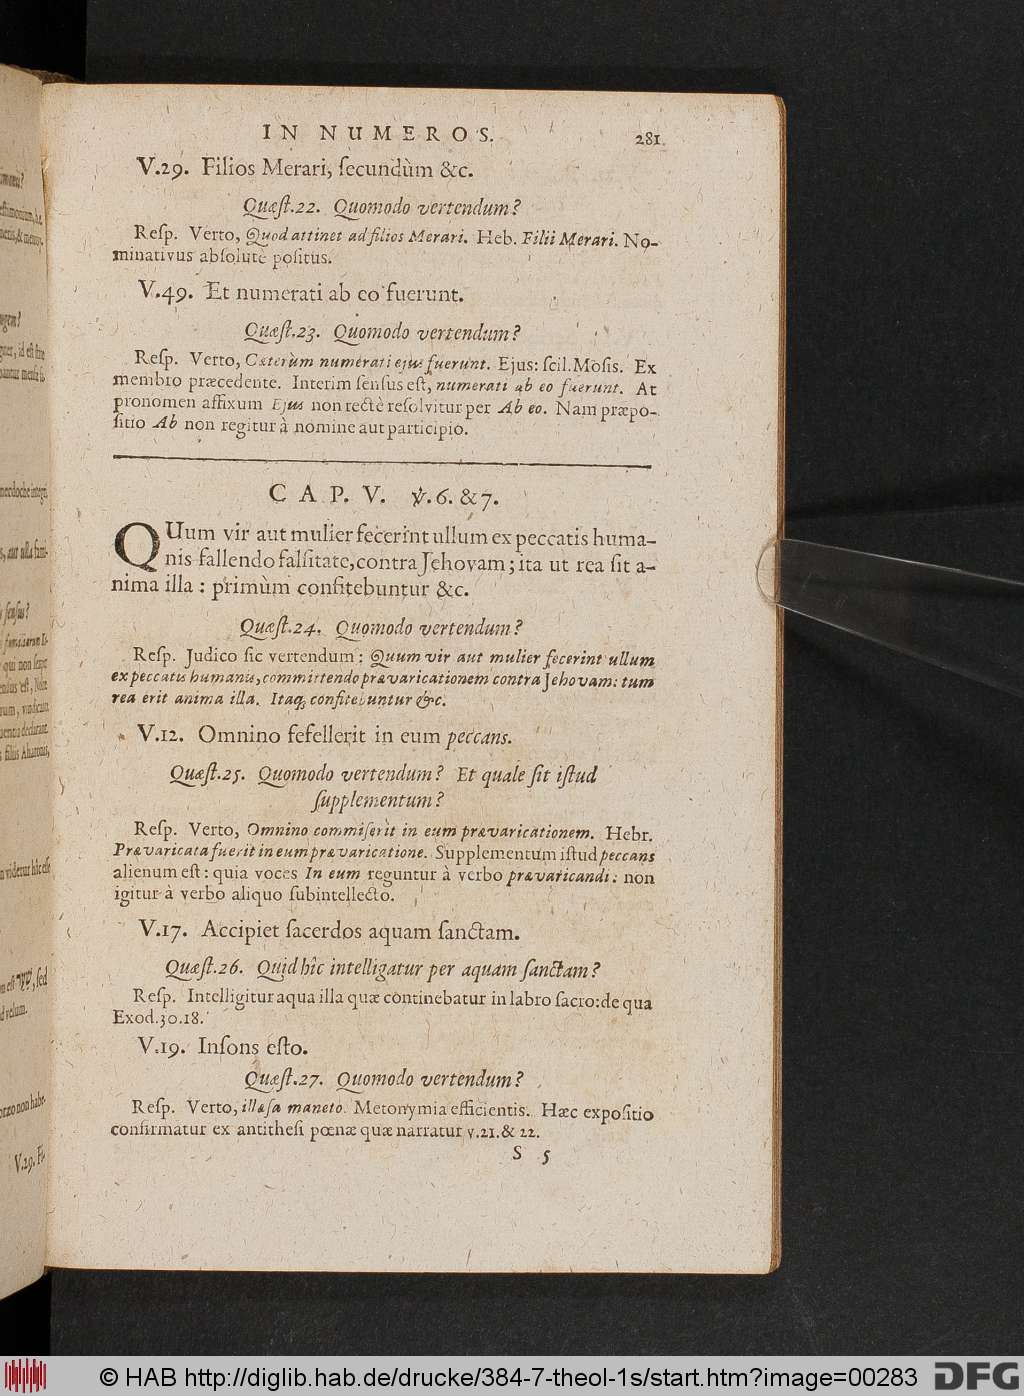 IN NUMEROS. 281
V.29. Filios Merari, ſecundùm &c.
Quæſt.22. Quomodo vertendum?
Reſp. Verto, Quod attinet ad filios Merari. Heb. Filii Merari. No-
minativus abſolutè poſitus.
V.49. Et numerati ab eo fuerunt.
Quæſt.23. Quomodo vertendum?
Reſp. Verto, Cæterùm numerati ejus fuerunt. Ejus: ſcil. Moſis. Ex
membro præcedente. Interim ſenſus eſt, numerati ab eo fuerunt. At
pronomen affixum Ejus non rectè reſolvitur per Ab eo. Nam præpo-
ſitio Ab non regitur à nomine aut participio.
CAP. V. ℣.6. & 7.
QUum vir aut mulier fecerint ullum ex peccatis huma-
nis fallendo falſitate, contra Jehovam; ita ut rea ſit a-
nima illa: primùm confitebuntur &c.
Quæſt.24. Quomodo vertendum?
Reſp. Judico ſic vertendum: Quum vir aut mulier fecerint ullum
ex peccatis humanis, committendo prævaricationem contra Jehovam: tum
rea erit anima illa. Itaq; confitebuntur &c.
V.12. Omnino fefellerit in eum peccans.
Quæſt.25. Quomodo vertendum? Et quale ſit iſtud
ſupplementum?
Reſp. Verto, Omnino commiſerit in eum prævaricationem. Hebr.
Prævaricata fuerit in eum prævaricatione. Supplementum iſtud peccans
alienum eſt: quia voces In eum reguntur à verbo prævaricandi: non
igitur à verbo aliquo ſubintellecto.
V.17. Accipiet ſacerdos aquam ſanctam.
Quæſt.26. Quid hîc intelligatur per aquam ſanctam?
Reſp. Intelligitur aqua illa quæ continebatur in labro ſacro: de qua
Exod.30.18.
V.19. Inſons eſto.
Quæſt.27. Quomodo vertendum?
Reſp. Verto, illæſa maneto. Metonymia efficientis. Hæc expoſitio
confirmatur ex antitheſi pœnæ quæ narratur v.21. & 22.
S 5
© HAB http://diglib.hab.de/drucke/384-7-theol-1s/start.htm?image=00283
DFG